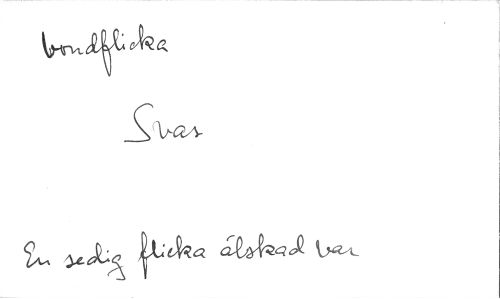 bondflicka
Svas
En sedig flicka älskad var